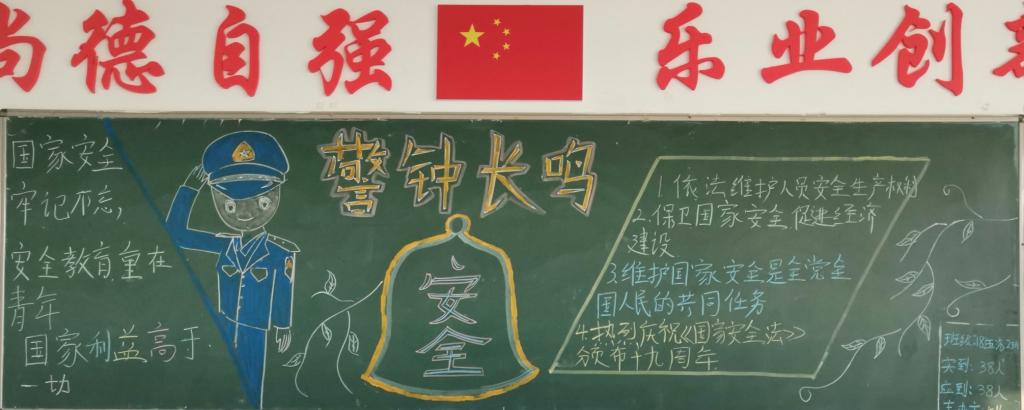 尚德自强 乐业创
国家安全
牢记不忘,
安全教育重在
青年
国家利益高于
一切
警钟长鸣
安全
1.依法维护人员安全生产权利
2.保卫国家安全 促进经济
建设
3.维护国家安全是全党全
国人民的共同任务
4.热烈庆祝《国家安全法》
颁布十九周年
实到:38人
应到:38人